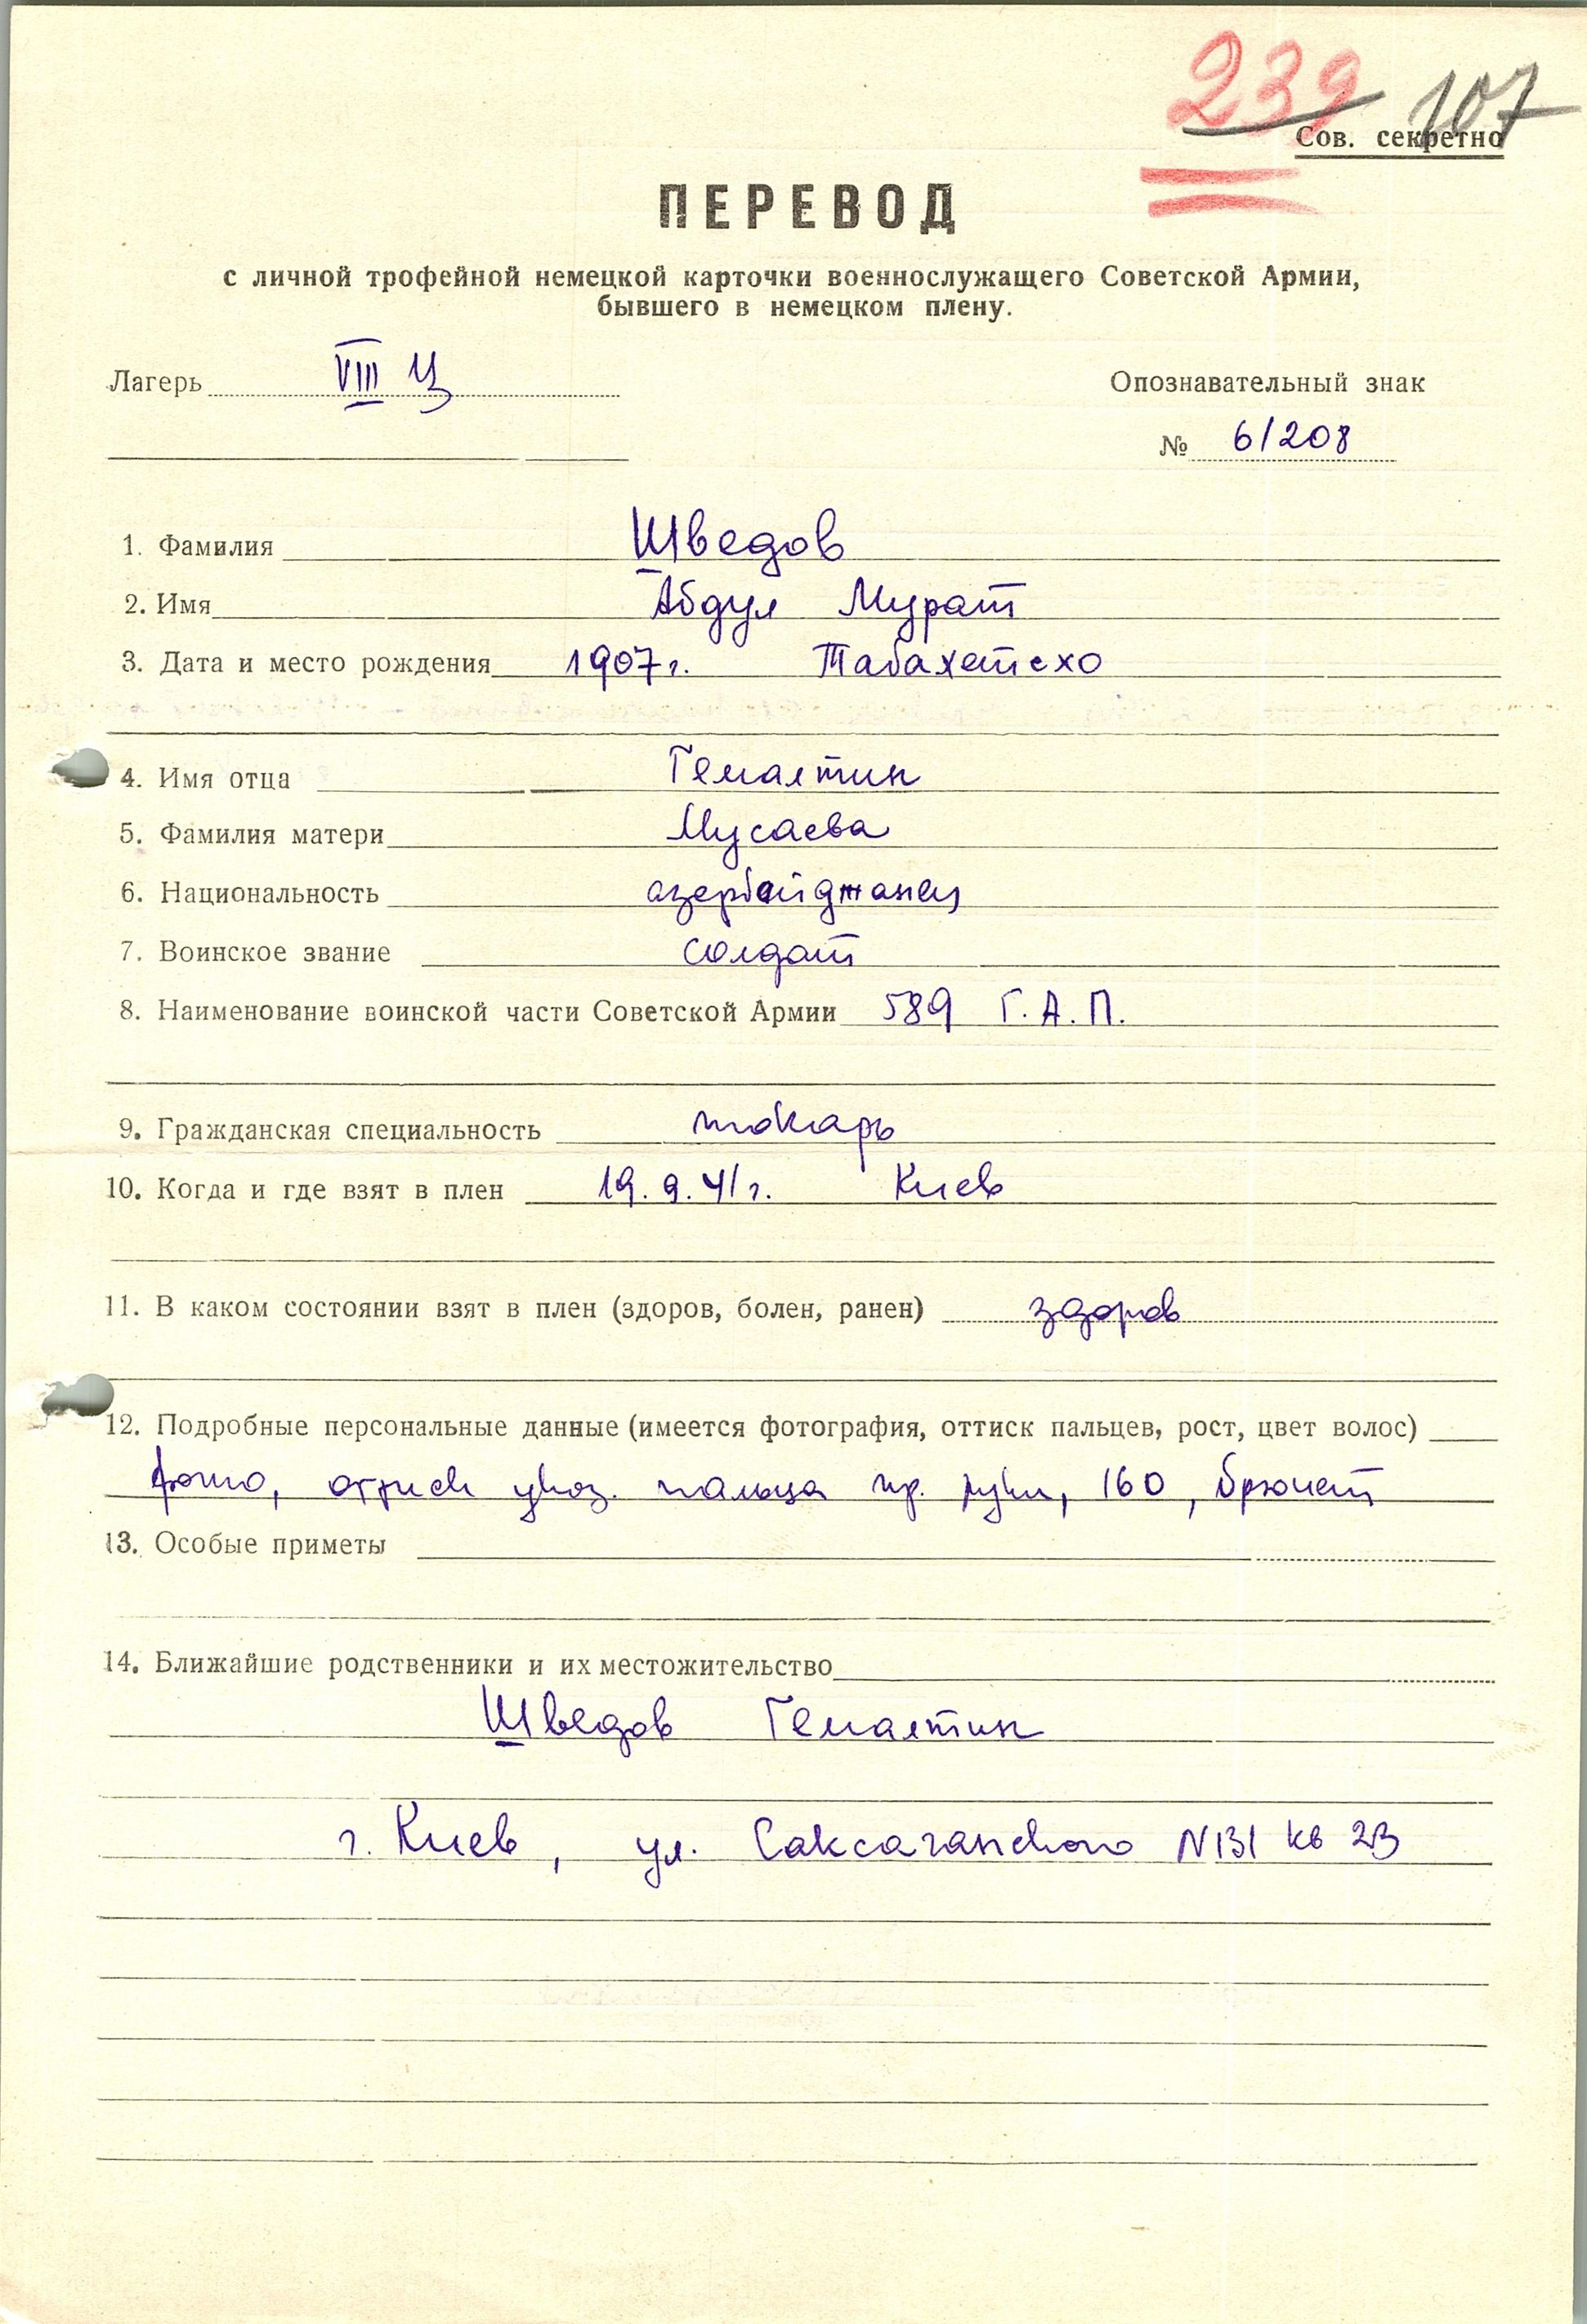 239 107
Сов. секретно
ПЕРЕВОД
с личной трофейной немецкой карточки военнослужащего Советской Армии,
бывшего в немецком плену.
Лагерь VIII Ц
Опознавательный знак
№ 6/208
1. Фамилия Шведов
2. Имя Абдул Мурат
3. Дата и место рождения 1907 г. Табахетсхо
4. Имя отца Гемалтин
5. Фамилия матери Мусаева
6. Национальность азербайджанец
7. Воинское звание солдат
8. Наименование воинской части Советской Армии 589 Г.А.П.
9. Гражданская специальность токарь
10. Когда и где взят в плен 19.9.41 г. Киев
11. В каком состоянии взят в плен (здоров, болен, ранен) здоров
12. Подробные персональные данные (имеется фотография, оттиск пальцев, рост, цвет волос)
фото, оттиск указ. пальца пр. руки, 160, брюнет
13. Особые приметы
14. Ближайшие родственники и их местожительство
Шведов Гемалтин
г. Киев, ул. Саксаганского N131 кв 23